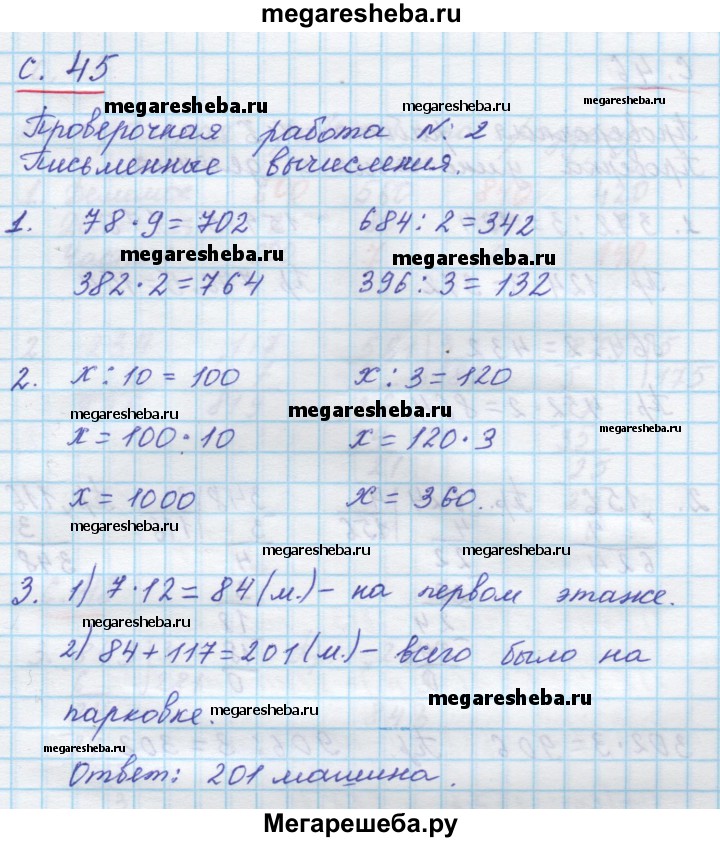 megaresheba.ru
с. 45
megaresheba.ru megaresheba.ru
Проверочная работа № 2
Письменные вычисления.
1. 78 · 9 = 702 684 : 2 = 342
megaresheba.ru megaresheba.ru
382 · 2 = 764 396 : 3 = 132
2. х : 10 = 100 х : 3 = 120
megaresheba.ru megaresheba.ru megaresheba.ru
х = 100 · 10 х = 120 · 3
megaresheba.ru
х = 1000 х = 360.
megaresheba.ru
megaresheba.ru megaresheba.ru
3. 1) 7 · 12 = 84 (м.) – на первом этаже.
megaresheba.ru
2) 84 + 117 = 201 (м.) – всего было на
megaresheba.ru
парковке. megaresheba.ru
megaresheba.ru
Ответ: 201 машина.
Мегарешеба.ру